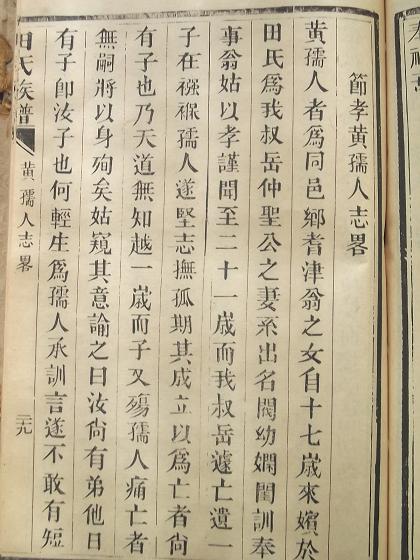 節孝黃孺人志畧
黃孺人者爲同邑鄉耆津翁之女自十七歲來嬪於
田氏爲我叔岳仲聖公之妻系出名閥幼嫻閨訓奉
事翁姑以孝謹聞至二十一歲而我叔岳遽亡遺一
子在襁褓孺人遂堅志撫孤期其成立以爲亡者尙
有子也乃天道無知越一歲而子又殤孺人痛亡者
無嗣將以身殉矣姑窺其意諭之曰汝尙有弟他日
有子卽汝子也何輕生爲孺人承訓言遂不敢有短
田氏族譜
黃孺人志畧
二九